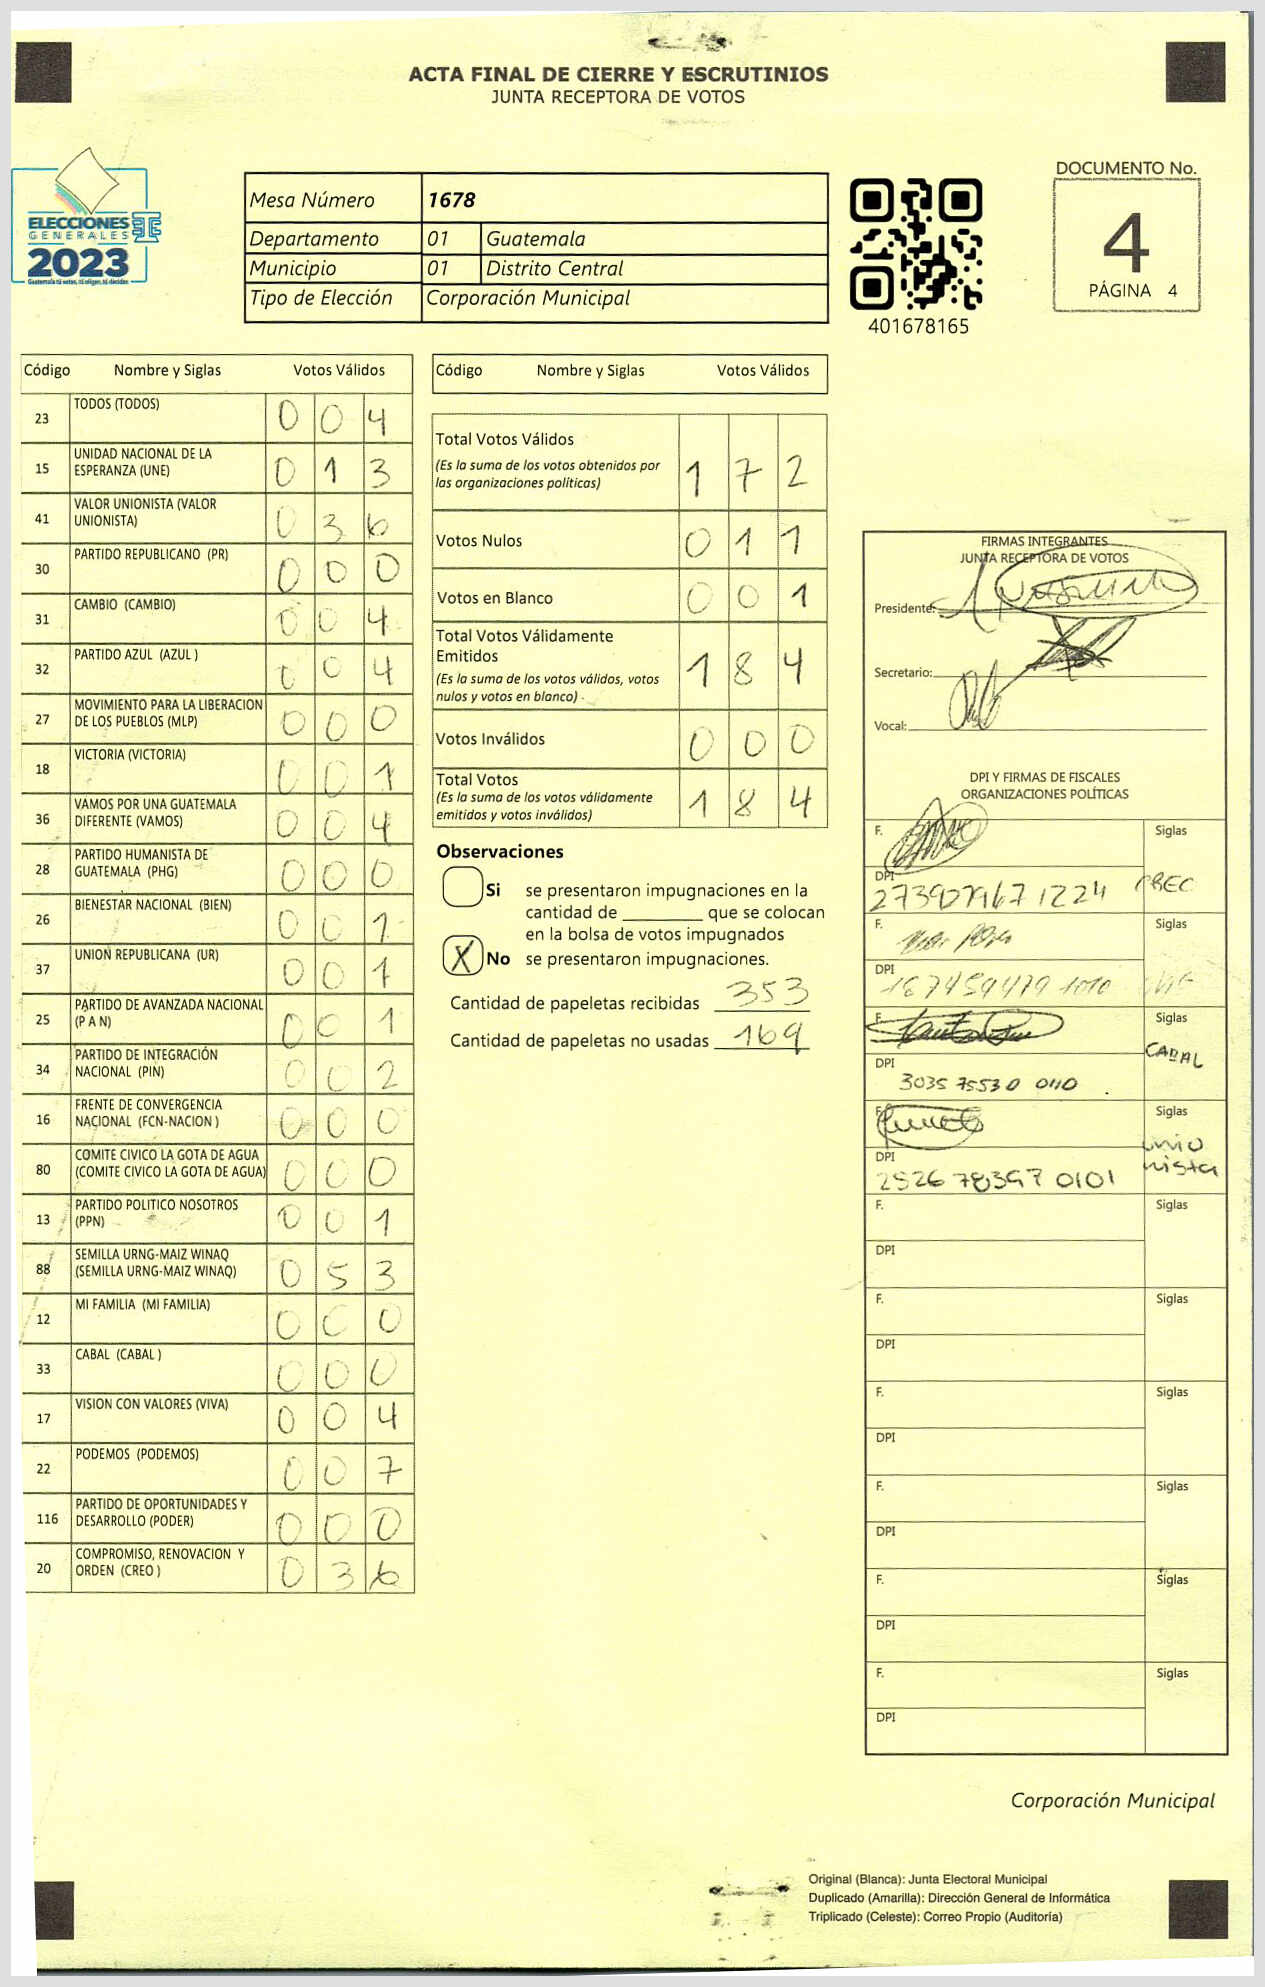 ACTA FINAL DE CIERRE Y ESCRUTINIOS
JUNTA RECEPTORA DE VOTOS
ELECCIONES
GENERALES
2023
Guatemala tú votas, tú eliges, tú decides
Mesa Número 1678
Departamento 01 Guatemala
Municipio 01 Distrito Central
Tipo de Elección Corporación Municipal
401678165
DOCUMENTO No.
4
PÁGINA 4
Código Nombre y Siglas Votos Válidos
23 TODOS (TODOS) 0 0 4
15 UNIDAD NACIONAL DE LA ESPERANZA (UNE) 0 1 3
41 VALOR UNIONISTA (VALOR UNIONISTA) 0 3 6
30 PARTIDO REPUBLICANO (PR) 0 0 0
31 CAMBIO (CAMBIO) 0 0 4
32 PARTIDO AZUL (AZUL ) 0 0 4
27 MOVIMIENTO PARA LA LIBERACION DE LOS PUEBLOS (MLP) 0 0 0
18 VICTORIA (VICTORIA) 0 0 1
36 VAMOS POR UNA GUATEMALA DIFERENTE (VAMOS) 0 0 4
28 PARTIDO HUMANISTA DE GUATEMALA (PHG) 0 0 0
26 BIENESTAR NACIONAL (BIEN) 0 0 1
37 UNION REPUBLICANA (UR) 0 0 1
25 PARTIDO DE AVANZADA NACIONAL (P A N) 0 0 1
34 PARTIDO DE INTEGRACIÓN NACIONAL (PIN) 0 0 2
16 FRENTE DE CONVERGENCIA NACIONAL (FCN-NACION ) 0 0 0
80 COMITE CIVICO LA GOTA DE AGUA (COMITE CIVICO LA GOTA DE AGUA) 0 0 0
13 PARTIDO POLITICO NOSOTROS (PPN) 0 0 1
88 SEMILLA URNG-MAIZ WINAQ (SEMILLA URNG-MAIZ WINAQ) 0 5 3
12 MI FAMILIA (MI FAMILIA) 0 0 0
33 CABAL (CABAL ) 0 0 0
17 VISION CON VALORES (VIVA) 0 0 4
22 PODEMOS (PODEMOS) 0 0 7
116 PARTIDO DE OPORTUNIDADES Y DESARROLLO (PODER) 0 0 0
20 COMPROMISO, RENOVACION Y ORDEN (CREO ) 0 3 6
Código Nombre y Siglas Votos Válidos
Total Votos Válidos 1 7 2
(Es la suma de los votos obtenidos por
las organizaciones políticas)
Votos Nulos 0 1 1
Votos en Blanco 0 0 1
Total Votos Válidamente
Emitidos 1 8 4
(Es la suma de los votos válidos, votos
nulos y votos en blanco)
Votos Inválidos 0 0 0
Total Votos 1 8 4
(Es la suma de los votos válidamente
emitidos y votos inválidos)
Observaciones
Si se presentaron impugnaciones en la
cantidad de ________ que se colocan
en la bolsa de votos impugnados
X No se presentaron impugnaciones.
Cantidad de papeletas recibidas 353
Cantidad de papeletas no usadas 169
FIRMAS INTEGRANTES
JUNTA RECEPTORA DE VOTOS
Presidente:
Secretario:
Vocal:
DPI Y FIRMAS DE FISCALES
ORGANIZACIONES POLÍTICAS
F. Siglas
DPI
F. Siglas
DPI
F. Siglas
CABAL
DPI
3035 75530 0110
F. Siglas
unio
nista
DPI
2526 78397 0101
F. Siglas
DPI
F. Siglas
DPI
F. Siglas
DPI
F. Siglas
DPI
F. Siglas
DPI
F. Siglas
DPI
Corporación Municipal
Original (Blanca): Junta Electoral Municipal
Duplicado (Amarilla): Dirección General de Informática
Triplicado (Celeste): Correo Propio (Auditoría)